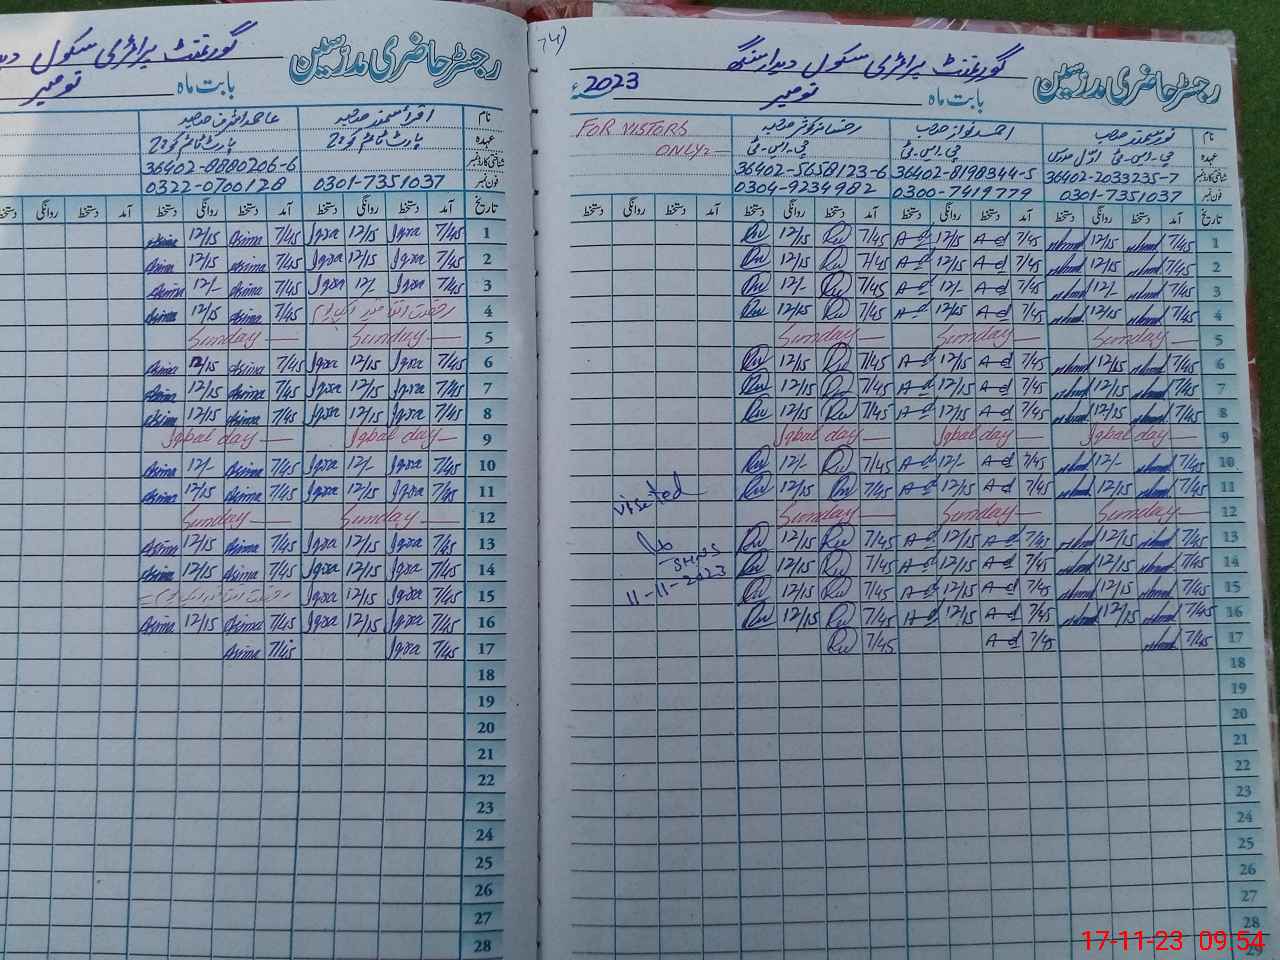 رجسٹر حاضری مدرسین
گورنمنٹ پرائمری سکول دیدار سنگھ
بابت ماہ نومبر 2023ء
نام
نور سمند صاحب
احمد نواز صاحب
رخسانہ کوثر صاحبہ
FOR VISITORS
ONLY:-
عہدہ
پی۔ایس۔ٹی
پی۔ایس۔ٹی
شناختی کارڈ نمبر
36402-2033235-7
36402-8198344-5
36402-5658123-6
فون نمبر
0301-7351037
0300-7419779
0304-9234982
تاریخ آمد دستخط روانگی دستخط آمد دستخط روانگی دستخط آمد دستخط روانگی دستخط آمد دستخط روانگی دستخط
1 7/45 12/15 7/45 A-d 12/15 A-d 7/45 12/15
2 7/45 12/15 7/45 A-d 12/15 A-d 7/45 12/15
3 7/45 12/- 7/45 A-d 12/- A-d 7/45 12/-
4 7/45 12/15 7/45 A-d 12/15 A-d 7/45 12/15
5 Sunday Sunday Sunday
6 7/45 12/15 7/45 A-d 12/15 A-d 7/45 12/15
7 7/45 12/15 7/45 A-d 12/15 A-d 7/45 12/15
8 7/45 12/15 7/45 A-d 12/15 A-d 7/45 12/15
9 Iqbal day Iqbal day Iqbal day
10 7/45 12/- 7/45 A-d 12/- A-d 7/45 12/-
11 7/45 12/15 7/45 A-d 12/15 A-d 7/45 12/15
12 Sunday Sunday Sunday
13 7/45 12/15 7/45 A-d 12/15 A-d 7/45 12/15
14 7/45 12/15 7/45 A-d 12/15 A-d 7/45 12/15
15 7/45 12/15 7/45 A-d 12/15 A-d 7/45 12/15
16 7/45 12/15 7/45 A-d 12/15 A-d 7/45 12/15
17 7/45 7/45 A-d 7/45
18
19
20
21
22
23
24
25
26
27
28
29
visited
11-11-2023
رجسٹر حاضری مدرسین
گورنمنٹ پرائمری سکول
بابت ماہ نومبر
نام
اقراء سمند صاحبہ
عہدہ
شناختی کارڈ نمبر
36402-8880206-6
فون نمبر
0301-7351037
0322-0700128
تاریخ آمد دستخط روانگی دستخط آمد دستخط روانگی دستخط آمد دستخط روانگی دستخط
1 7/45 Iqra 12/15 Iqra 7/45 Asima 12/15 Asima
2 7/45 Iqra 12/15 Iqra 7/45 Asima 12/15 Asima
3 7/45 Iqra 12/- Iqra 7/45 Asima 12/- Asima
4 7/45 Asima 12/15 Asima
5 Sunday Sunday
6 7/45 Iqra 12/15 Iqra 7/45 Asima 12/15 Asima
7 7/45 Iqra 12/15 Iqra 7/45 Asima 12/15 Asima
8 7/45 Iqra 12/15 Iqra 7/45 Asima 12/15 Asima
9 Iqbal day Iqbal day
10 7/45 Iqra 12/- Iqra 7/45 Asima 12/- Asima
11 7/45 Iqra 12/15 Iqra 7/45 Asima 12/15 Asima
12 Sunday Sunday
13 7/45 Iqra 12/15 Iqra 7/45 Asima 12/15 Asima
14 7/45 Iqra 12/15 Iqra 7/45 Asima 12/15 Asima
15 7/45 Iqra 12/15 Iqra
16 7/45 Iqra 12/15 Iqra 7/45 Asima 12/15 Asima
17 7/45 Iqra 7/45 Asima
18
19
20
21
22
23
24
25
26
27
28
17-11-23 09:54